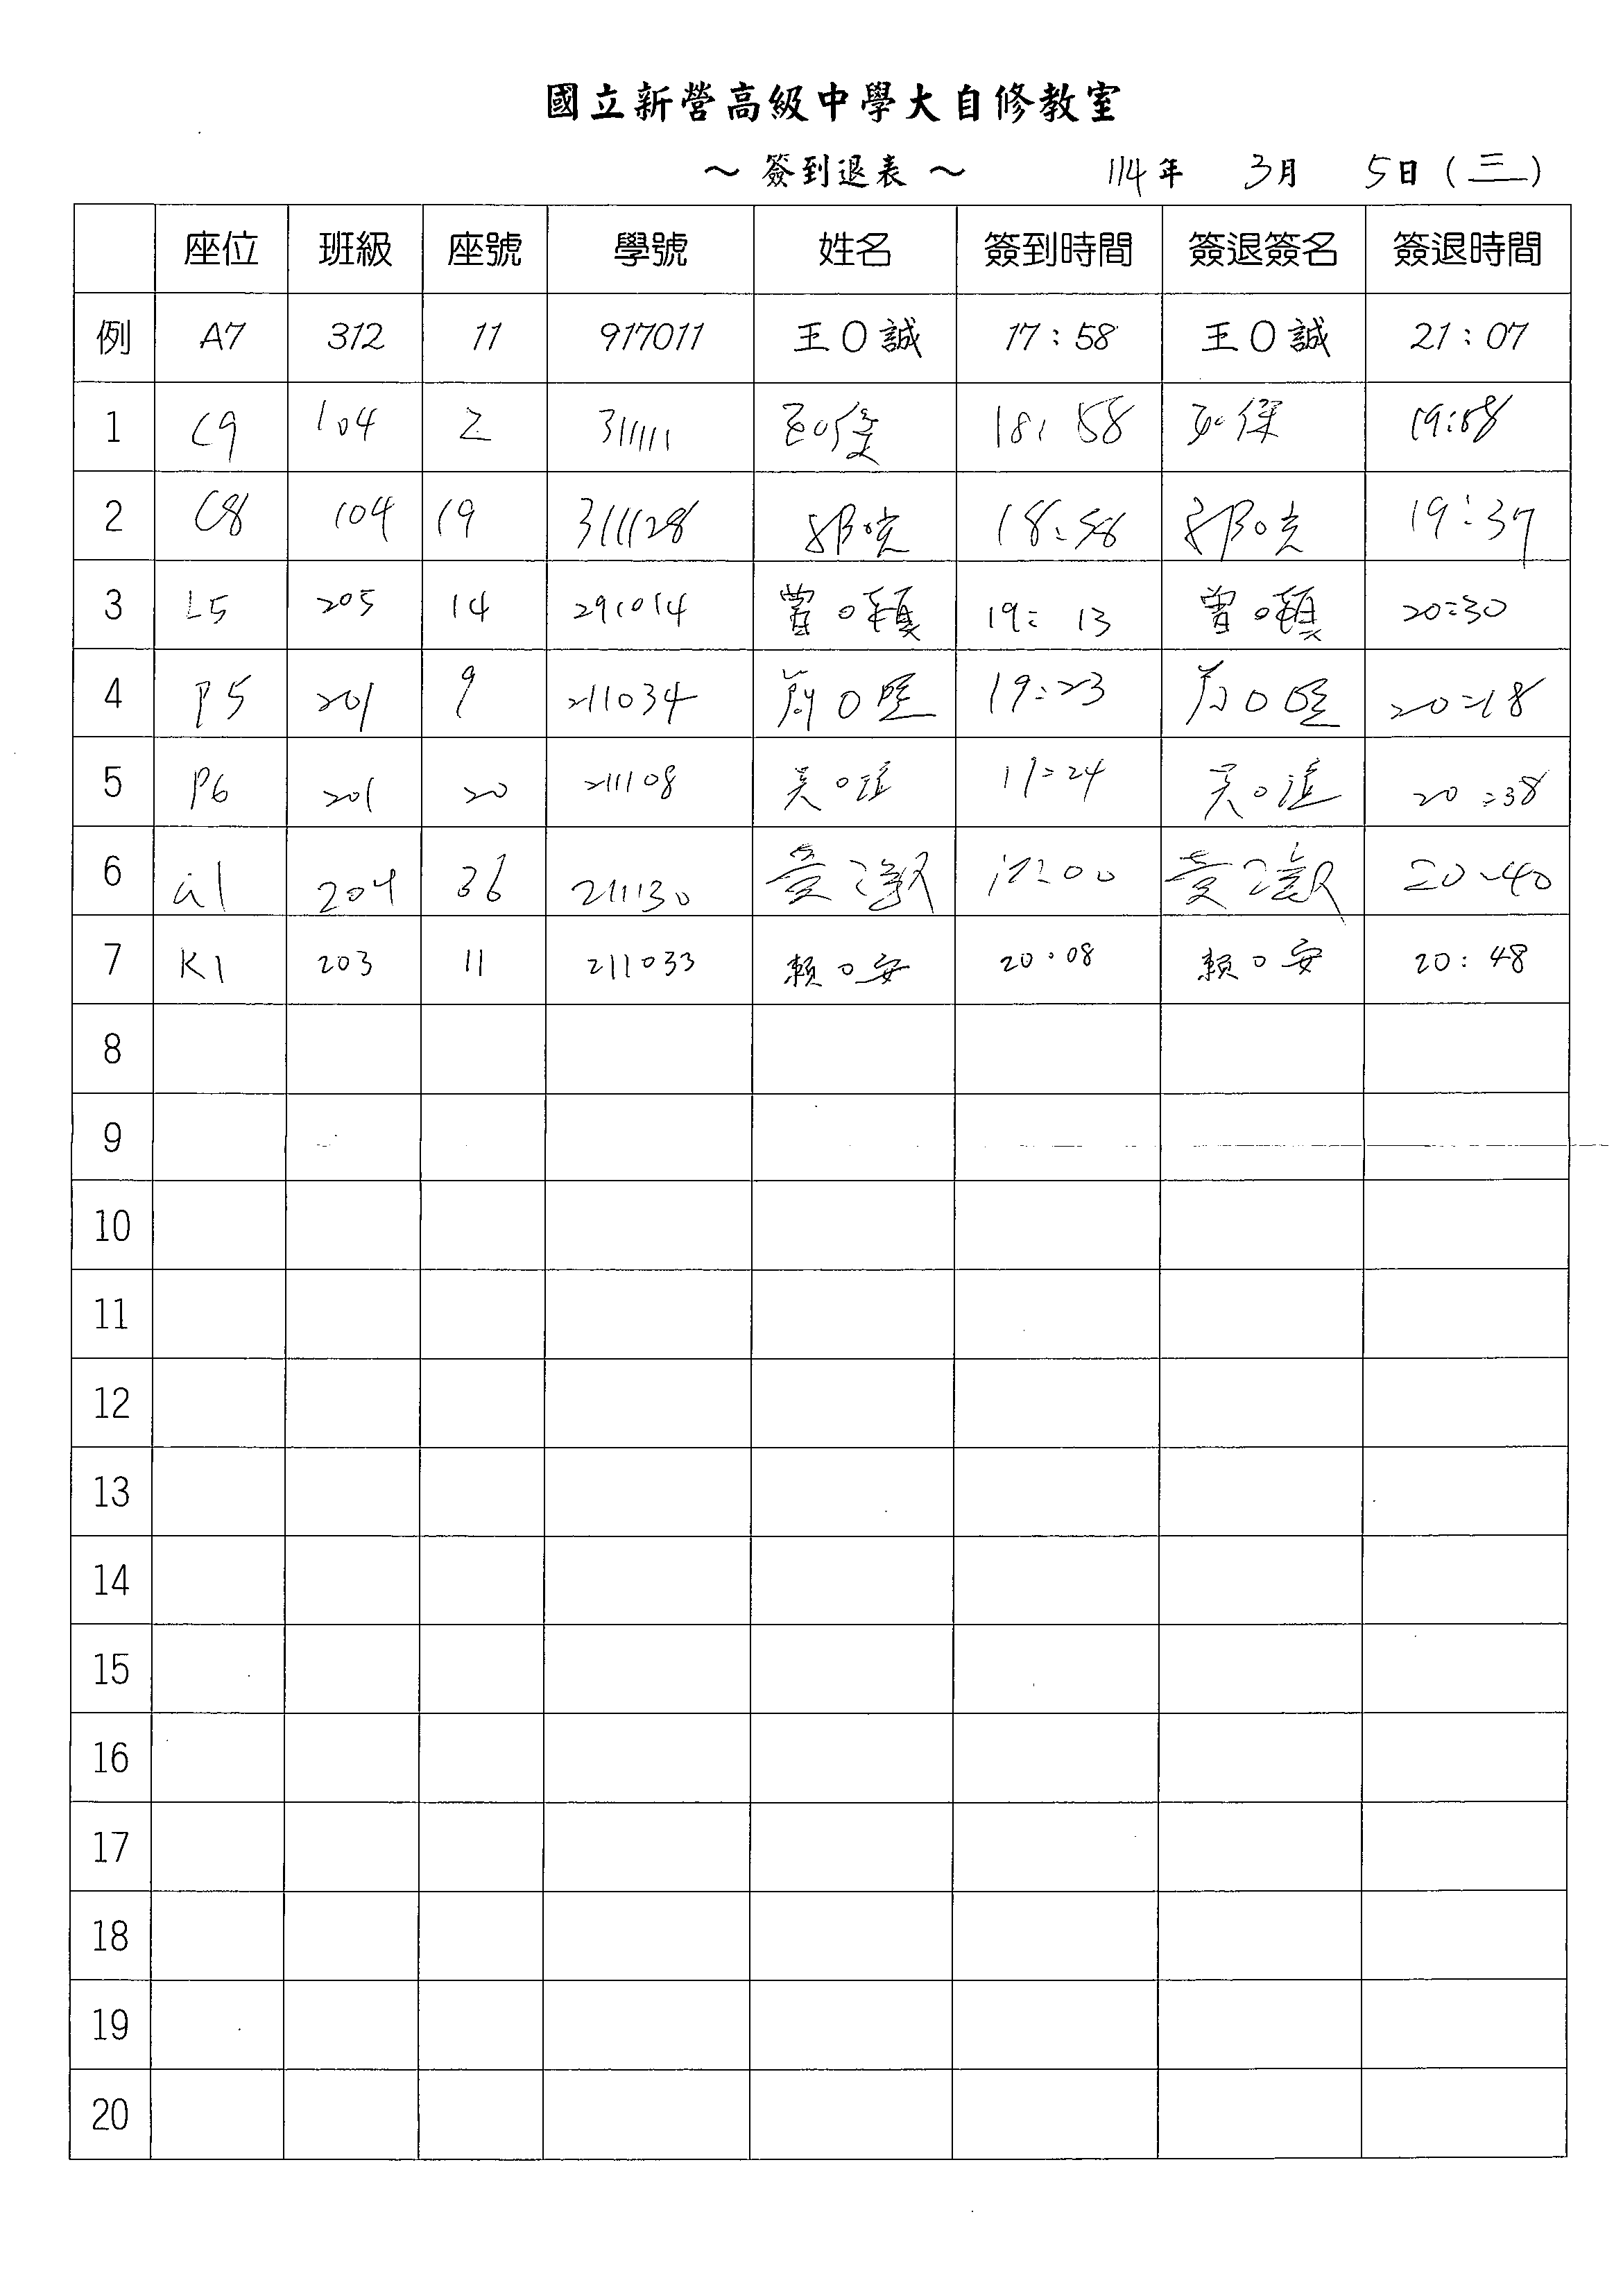 國立新營高級中學大自修教室
～ 簽到退表 ～ 114年 3月 5日 (三)
座位 班級 座號 學號 姓名 簽到時間 簽退簽名 簽退時間
例 A7 312 11 917011 王O誠 17:58 王O誠 21:07
1 C9 104 2 311111 18:58 19:58
2 C8 104 19 311128 18:58 19:37
3 L5 205 14 291014 曾O穎 19:13 曾O穎 20:30
4 P5 201 9 211034 19:23 20:18
5 P6 201 20 211108 吳O 20:38
6 204 36 211130 黃 黃 20:40
7 K1 203 11 211033 賴O安 20:08 賴O安 20:48
8
9
10
11
12
13
14
15
16
17
18
19
20